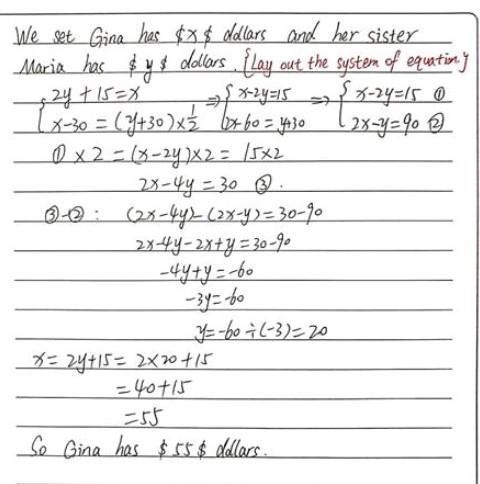 We set Gina has $x$ dollars and her sister
Maria has $y$ dollars. {Lay out the system of equation.}
{2y+15=x ⇒ {x-2y=15 ⇒ {x-2y=15 ①
x-30=(y+30)×1/2 2x-60=y+30 2x-y=90 ②
①×2=(x-2y)×2=15×2
2x-4y=30 ③.
③-②: (2x-4y)-(2x-y)=30-90
2x-4y-2x+y=30-90
-4y+y=-60
-3y=-60
y=-60÷(-3)=20
x=2y+15=2×20+15
=40+15
=55
So Gina has $55$ dollars.